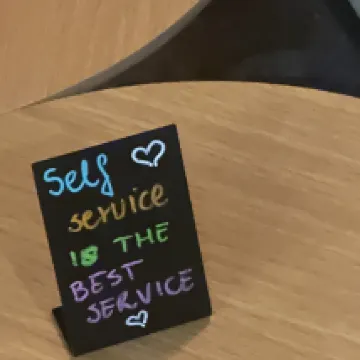 Self
service
is THE
BEST
SERVICE